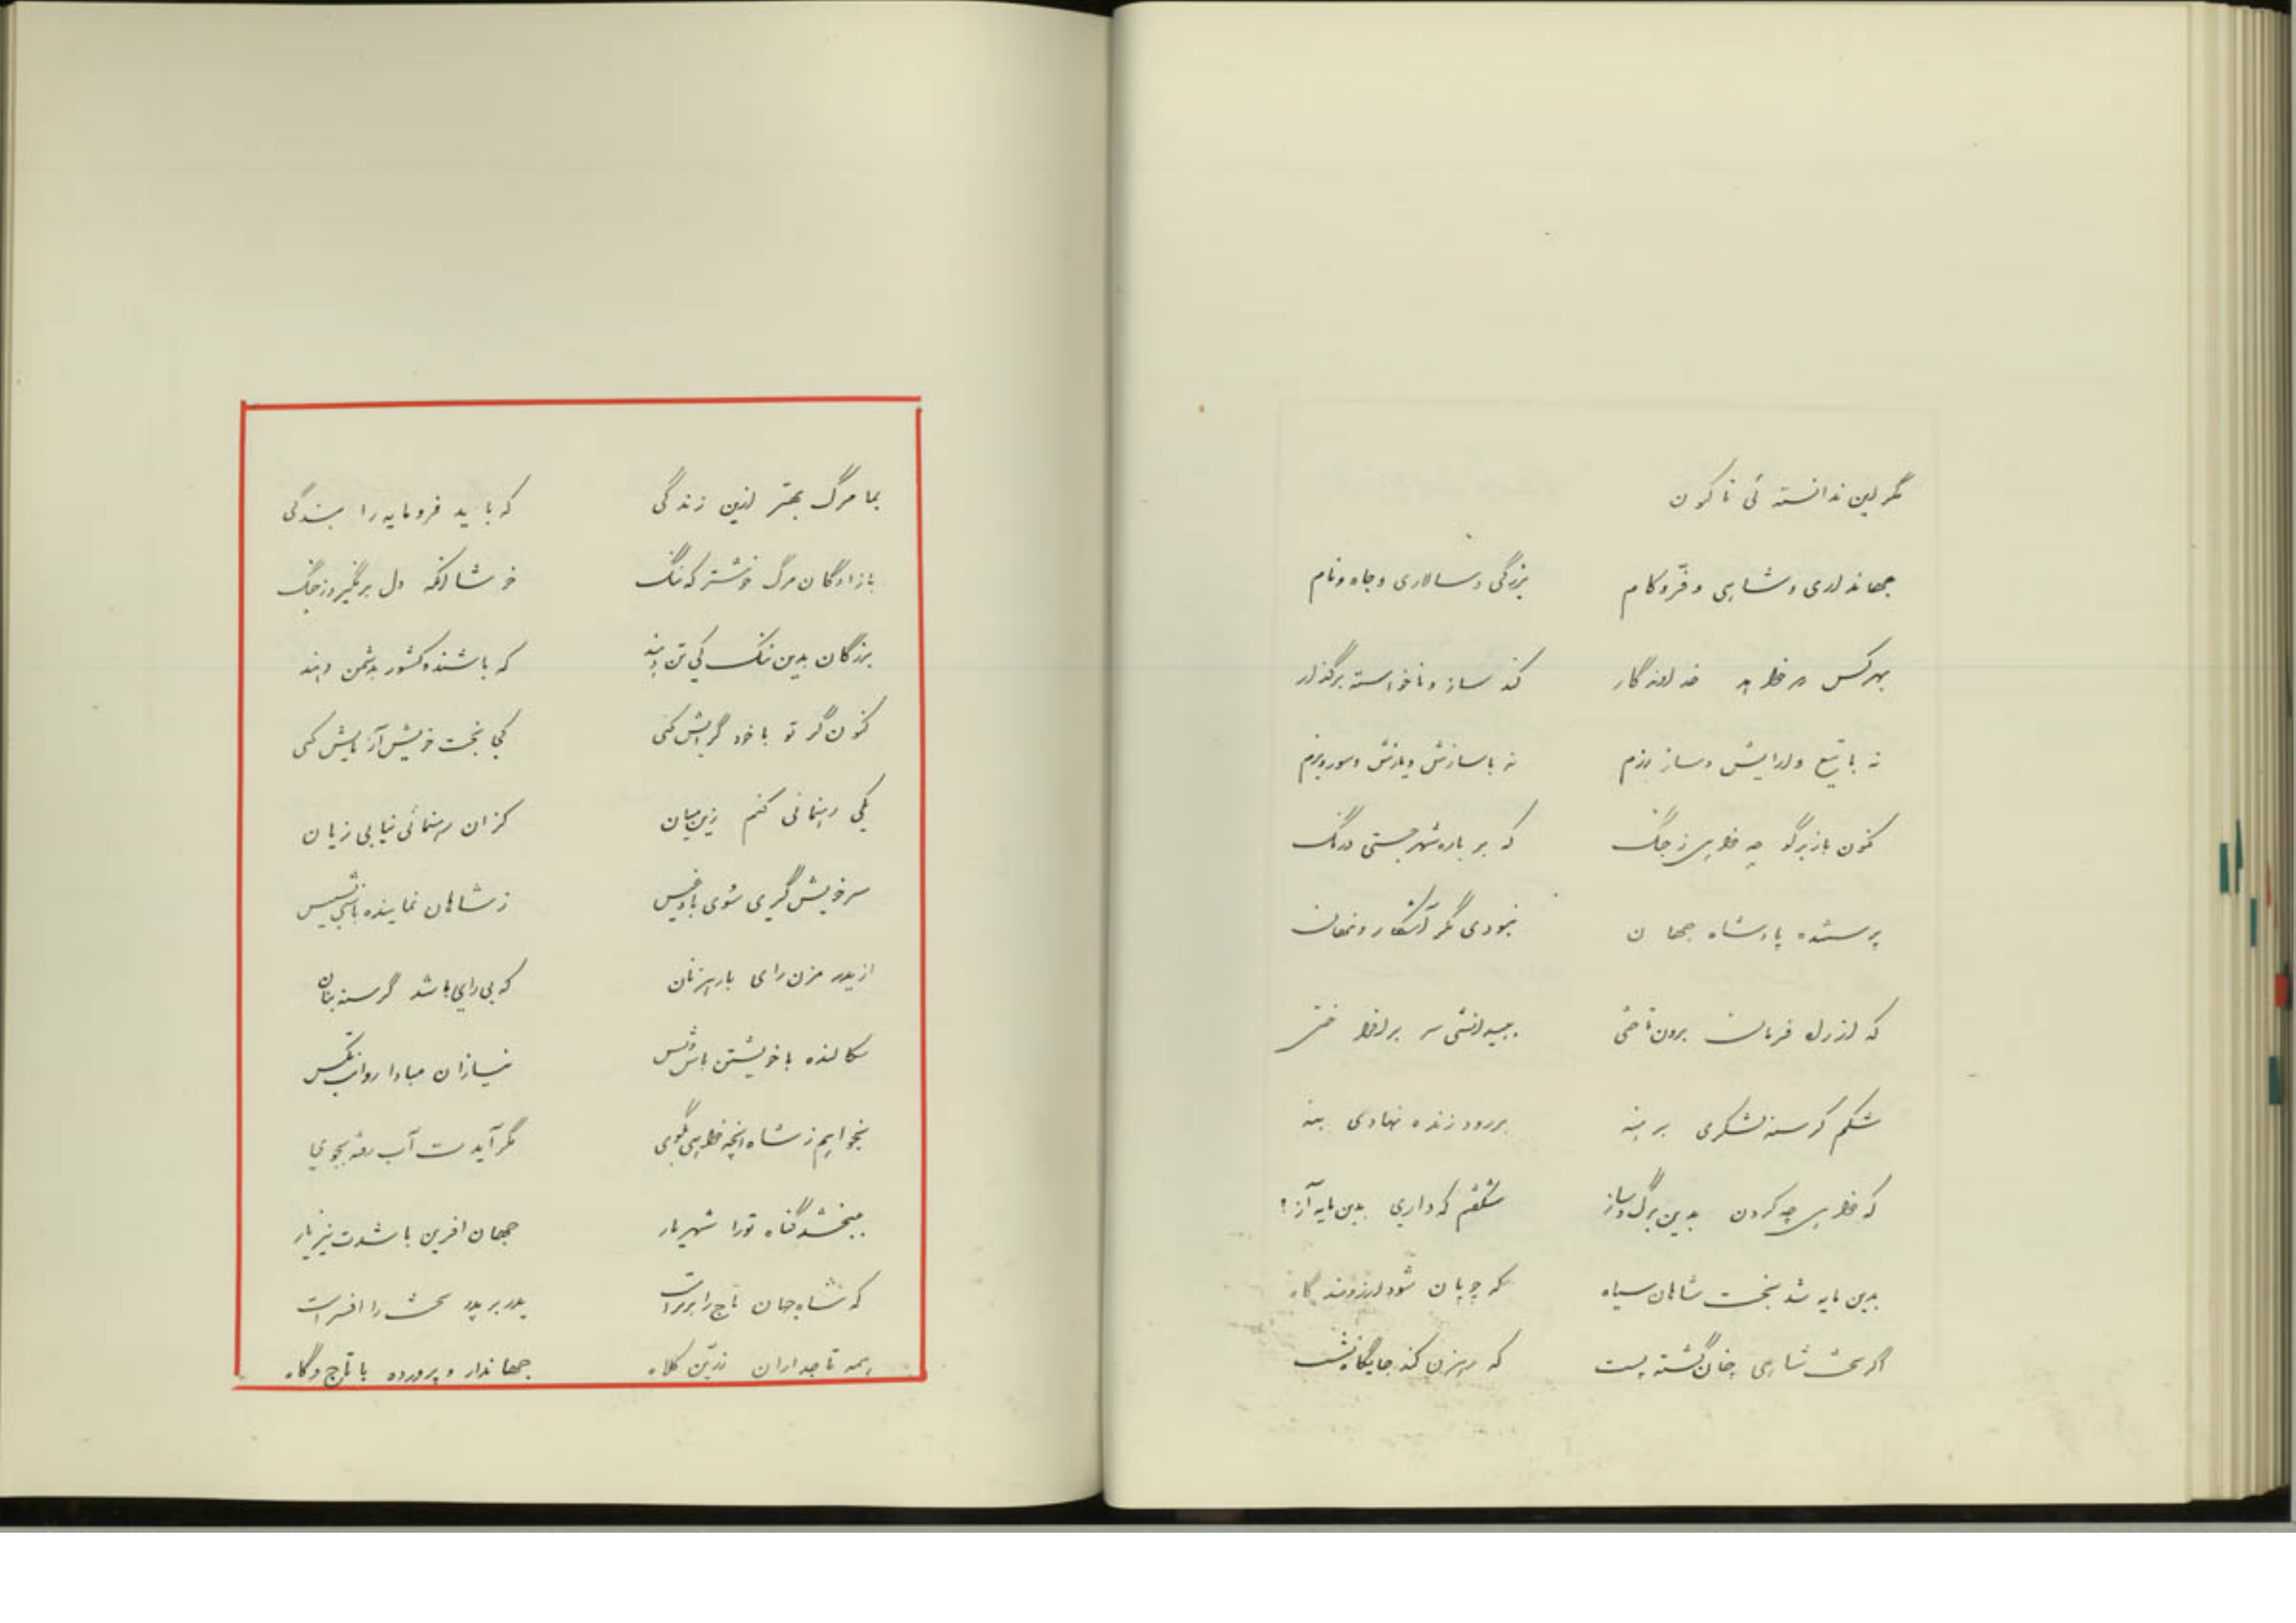 مگر این ندانسته ئی تا کنون
جهانداری و شاهی و فرّ و کام بزرگی و سالاری و جاه و نام
بهر کس که خواهد خداوندگار کند ساز و ناخواسته برگذار
نه با تیغ و آرایش و ساز رزم نه با سازش و رازش و سور و بزم
کنون باز برگو چه خواهی ز جنگ که بر باره شهر جستی درنگ
پرستنده پادشاه جهان نبودی مگر آشکار و نهان
که از راه فرمان برون تاختی به بیدانشی سر برافراختی
شکم گرسنه لشکری برهنه بر رود زنده نهادی بنه
که خواهی چه کردن بدین برگ و ساز شگفتم که داری بدین مایه آز؟
بدین مایه شد بخت شاهان سیاه که چوپان شود آرزومند گاه
اگر تخت شاهی چنان گشته پست که رهزن کند جایگاه نشست
بما مرگ بهتر ازین زندگی که باید فرومایه را بندگی
بآزادگان مرگ خوشتر که ننگ خوشا آنکه دل برنگیرد ز جنگ
بزرگان بدین ننگ کی تن دهند که باشنده کشور بدشمن دهند
کنون گر تو با خود گرایش کنی کجی بخت خویش آزمایش کنی
یکی رهنمائی کنم زین میان کزان رهنمائی نیابی زیان
سر خویش گیری شوی بادغیس ز شاهان نماینده باشی
از ایدر مزن رای با رهزنان که بی رای باشد گرسنه بنان
سگالنده با خویشتن باش و بس نیازان مبادا روانت بکس
نخواهیم ز شاه آنچه خواهی بگوی مگر آیدت آب رفته بجوی
ببخشد گناه تو را شهریار جهان آفرین باشدت نیز یار
که شاه جهان تاج را برتر است پدر بر پدر تخت را افسر است
همه تاجداران زرّین کلاه جهاندار و پرورده با تاج و گاه